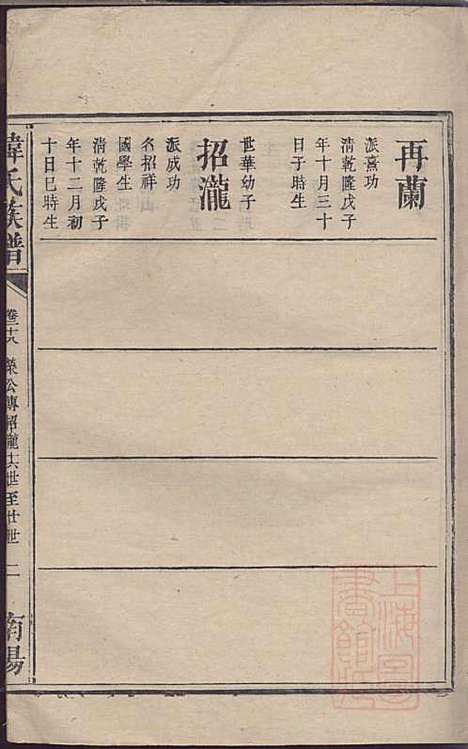 再蘭
派熹功
清乾隆戊子
年十月三十
日子時生
世華幼子
招瀧
派成功
名招祥
國學生
清乾隆戊子
年十二月初
十日巳時生
韓氏族譜
卷三十八 榮公傳招瀧十六世至廿世 二
南陽
上海圖書館藏